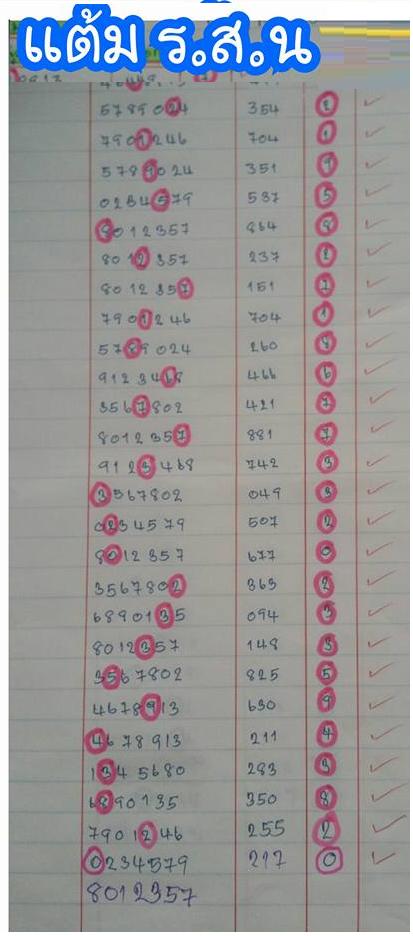 แต้ม ร.ส.น
5789024 354 2 ✓
7901246 704 1 ✓
5789024 351 9 ✓
0234579 537 5 ✓
8012357 864 8 ✓
8012357 237 2 ✓
8012357 151 7 ✓
7901246 704 1 ✓
5789024 260 8 ✓
9123468 466 6 ✓
3567802 421 7 ✓
8012357 881 7 ✓
9123468 742 3 ✓
3567802 049 3 ✓
0234579 507 2 ✓
8012357 677 0 ✓
3567802 363 2 ✓
6890135 094 3 ✓
8012357 148 3 ✓
3567802 825 5 ✓
4678913 630 9 ✓
4678913 211 4 ✓
1345680 283 3 ✓
6890135 350 8 ✓
7901246 255 2 ✓
0234579 217 0 ✓
8012357